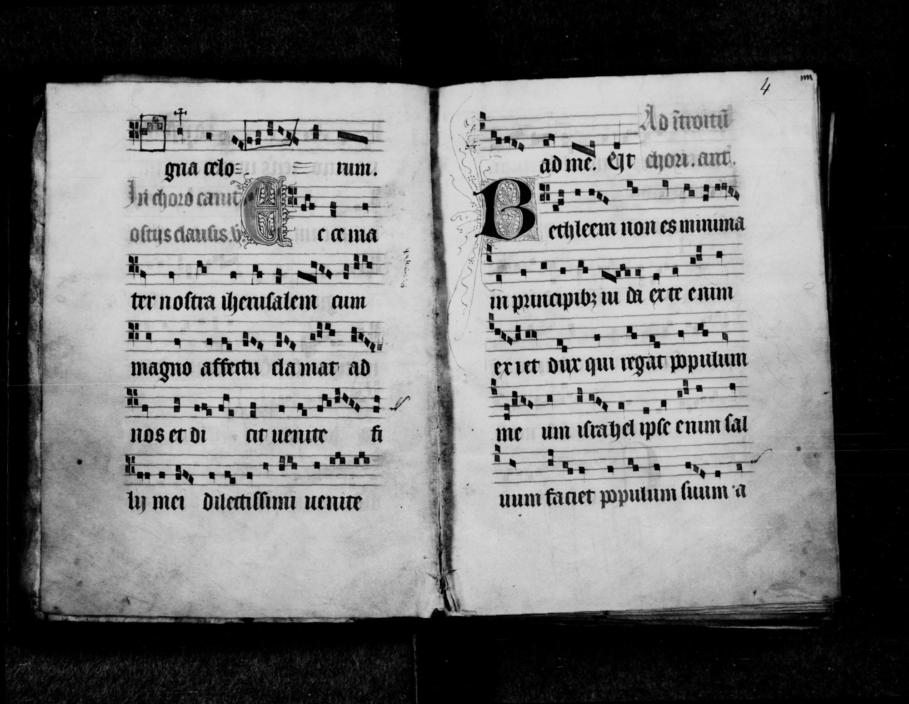 gna celo rum.
In choro canit
ostijs clausis. E c ce ma
ter nostra iherusalem cum
magno affectu clamat ad
nos et di cit uenite fi
lij mei dilectissimi uenite
4
Ad ītroitū
ad me. chori. ant.
B ethleem non es minima
in principibꝫ iu da ex te enim
exiet dux qui regat populum
me um israhel ipse enim sal
uum faciet populum suum a